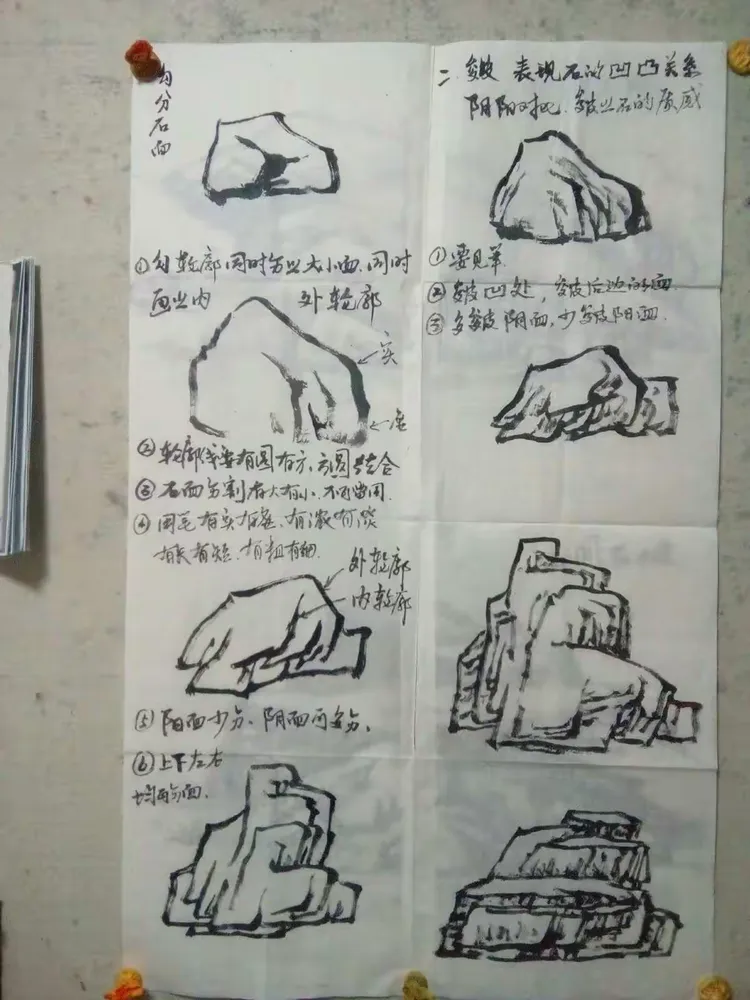 勾分石面
①勾轮廓同时分出大小面.同时
画出内 外轮廓
实
虚
②轮廓线要有圆有方,方圆结合
③石面分割有大有小.不可雷同.
④用笔有实有虚.有浓有淡
有长有短.有粗有细.
外轮廓
内轮廓
⑤阳面少分、阴面可多分、
⑥上下左右
均可分面.
二.皴 表现石的凹凸关系
阴阳对比.皴出石的质感
①要见笔
②皴凹处,皴后边的面.
③多皴阴面,少皴阳面.